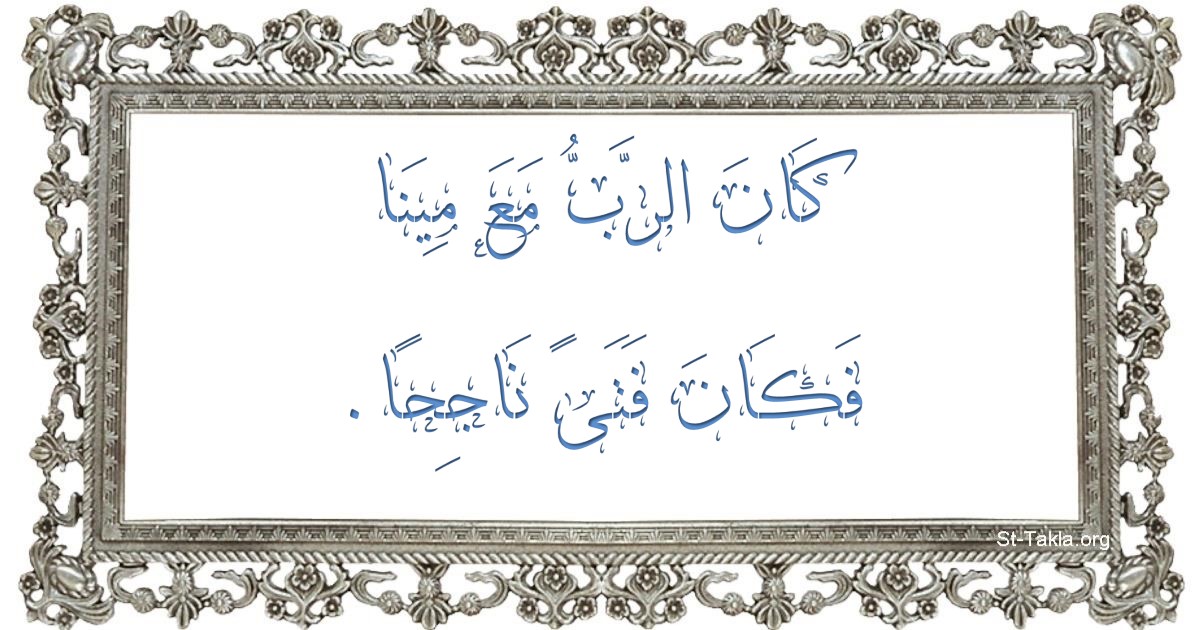 كَانَ الرَّبُّ مَعَ مِينَا
فَكَانَ فَتَىً نَاجِحًا .
St-Takla.org